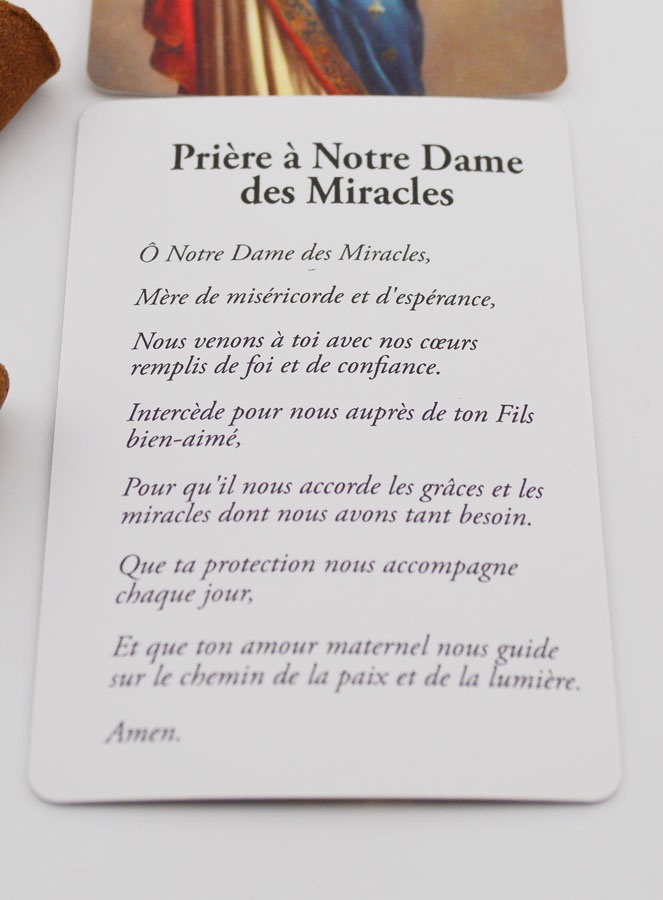 Prière à Notre Dame
des Miracles
Ô Notre Dame des Miracles,
Mère de miséricorde et d'espérance,
Nous venons à toi avec nos cœurs
remplis de foi et de confiance.
Intercède pour nous auprès de ton Fils
bien-aimé,
Pour qu'il nous accorde les grâces et les
miracles dont nous avons tant besoin.
Que ta protection nous accompagne
chaque jour,
Et que ton amour maternel nous guide
sur le chemin de la paix et de la lumière.
Amen.